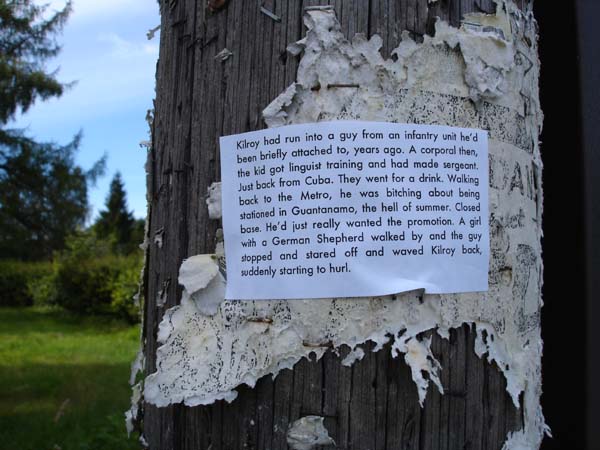 Kilroy had run into a guy from an infantry unit he'd
been briefly attached to, years ago. A corporal then,
the kid got linguist training and had made sergeant.
Just back from Cuba. They went for a drink. Walking
back to the Metro, he was bitching about being
stationed in Guantanamo, the hell of summer. Closed
base. He'd just really wanted the promotion. A girl
with a German Shepherd walked by and the guy
stopped and stared off and waved Kilroy back,
suddenly starting to hurl.